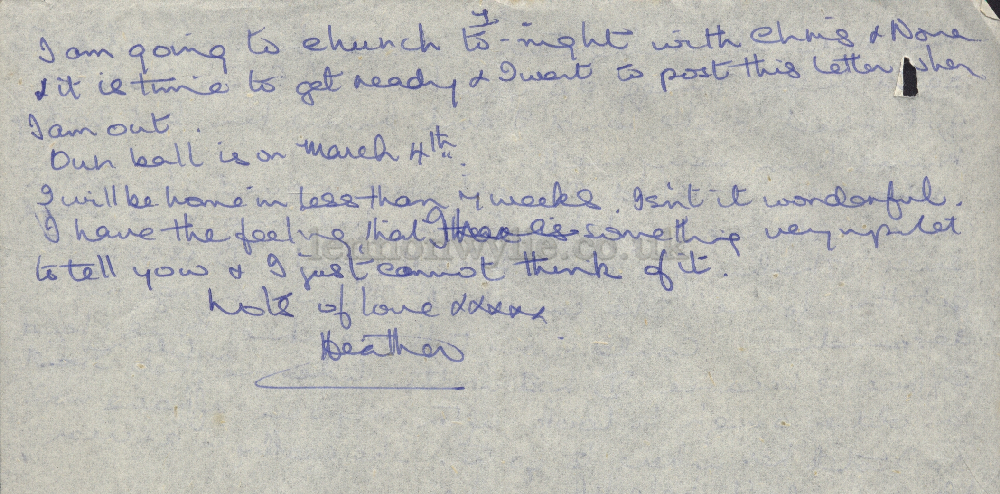 I am going to church to-night with Chris & Nora
& it is time to get ready & I want to post this letter when
I am out.
Our ball is on March 4th.
I will be home in less than 4 weeks. Isn't it wonderful.
I have the feeling that I have something very
to tell you & I just cannot think of it.
Lots of love xxxxx
Heather